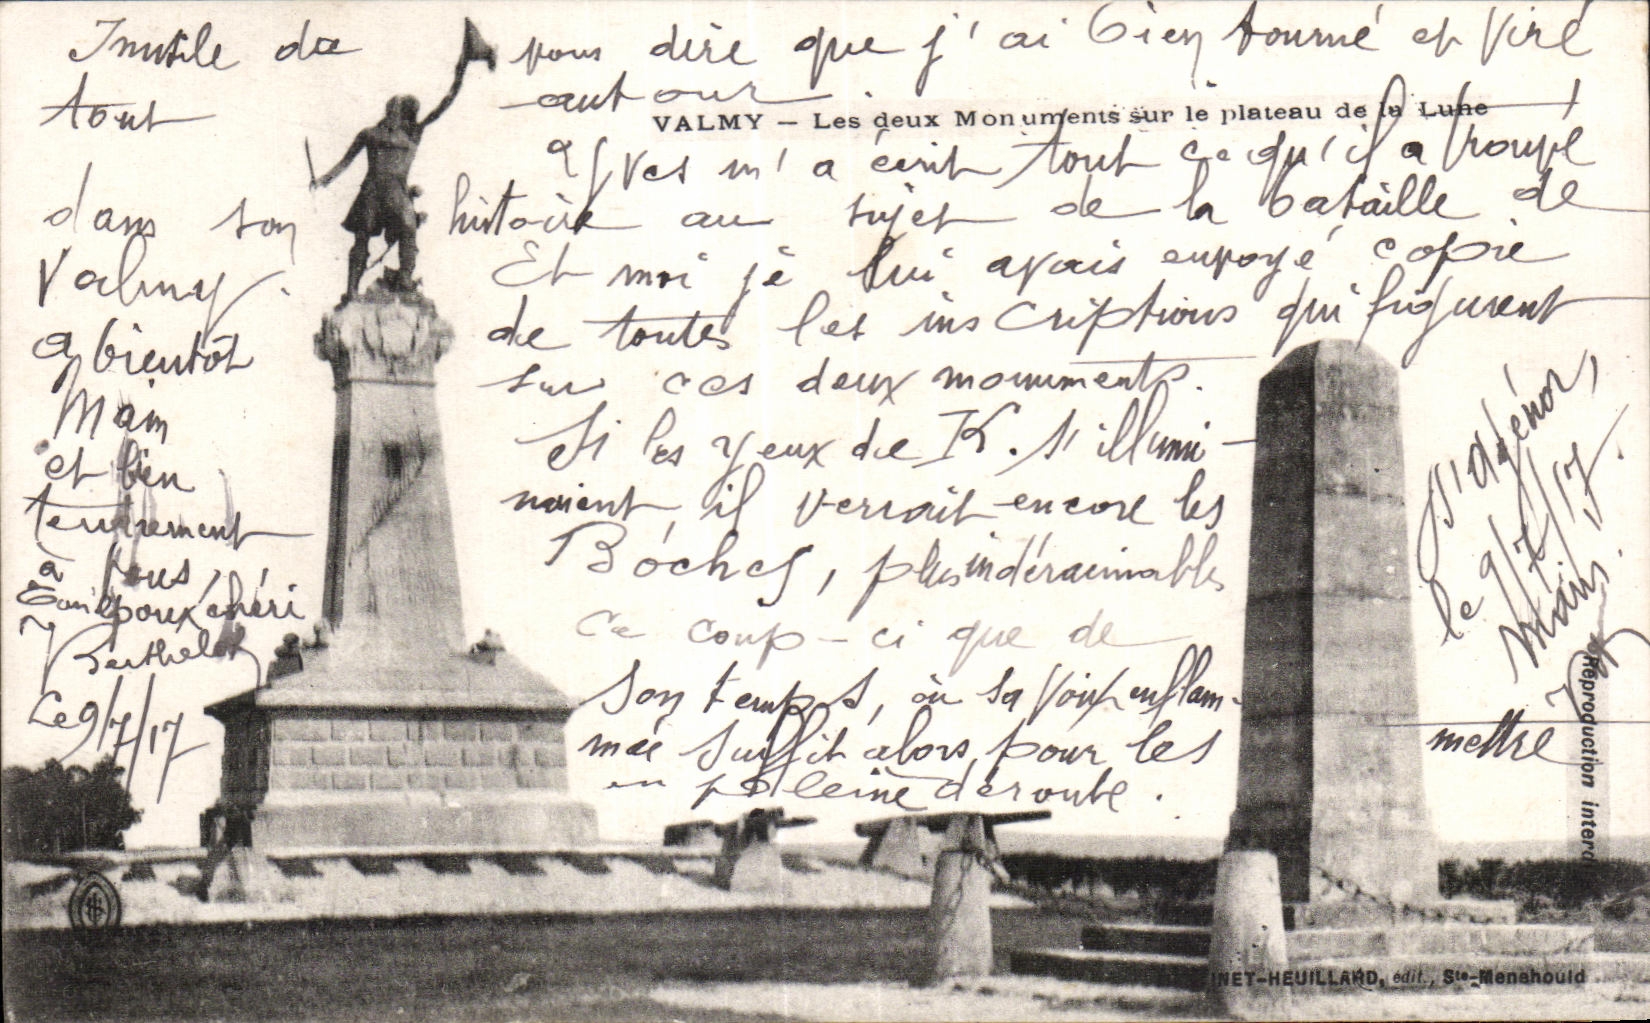 Inutile de vous dire que j'ai bien tourné et viré
tout autour
VALMY – Les deux Monuments sur le plateau de la Lune
Yves m'a écrit tout ce qu'il a trouvé
dans son histoire au sujet de la bataille de
Valmy.
Et moi je lui avais envoyé copie
de toutes les inscriptions qui figurent
sur ces deux monuments.
Si les yeux de K. s'illumi-
naient, il verrait encore les
Boches, plus indéracinables
ce coup-ci que de
son temps, où sa voix enflam-
mée suffit alors, pour les mettre
en pleine déroute.
A bientôt
Main
et bien
tendrement
à tous,
époux chéri
Le 9/7/17
St Agénor,
le 9/7/17.
Reproduction interd
INET-HEUILLARD, édit., Ste-Menehould